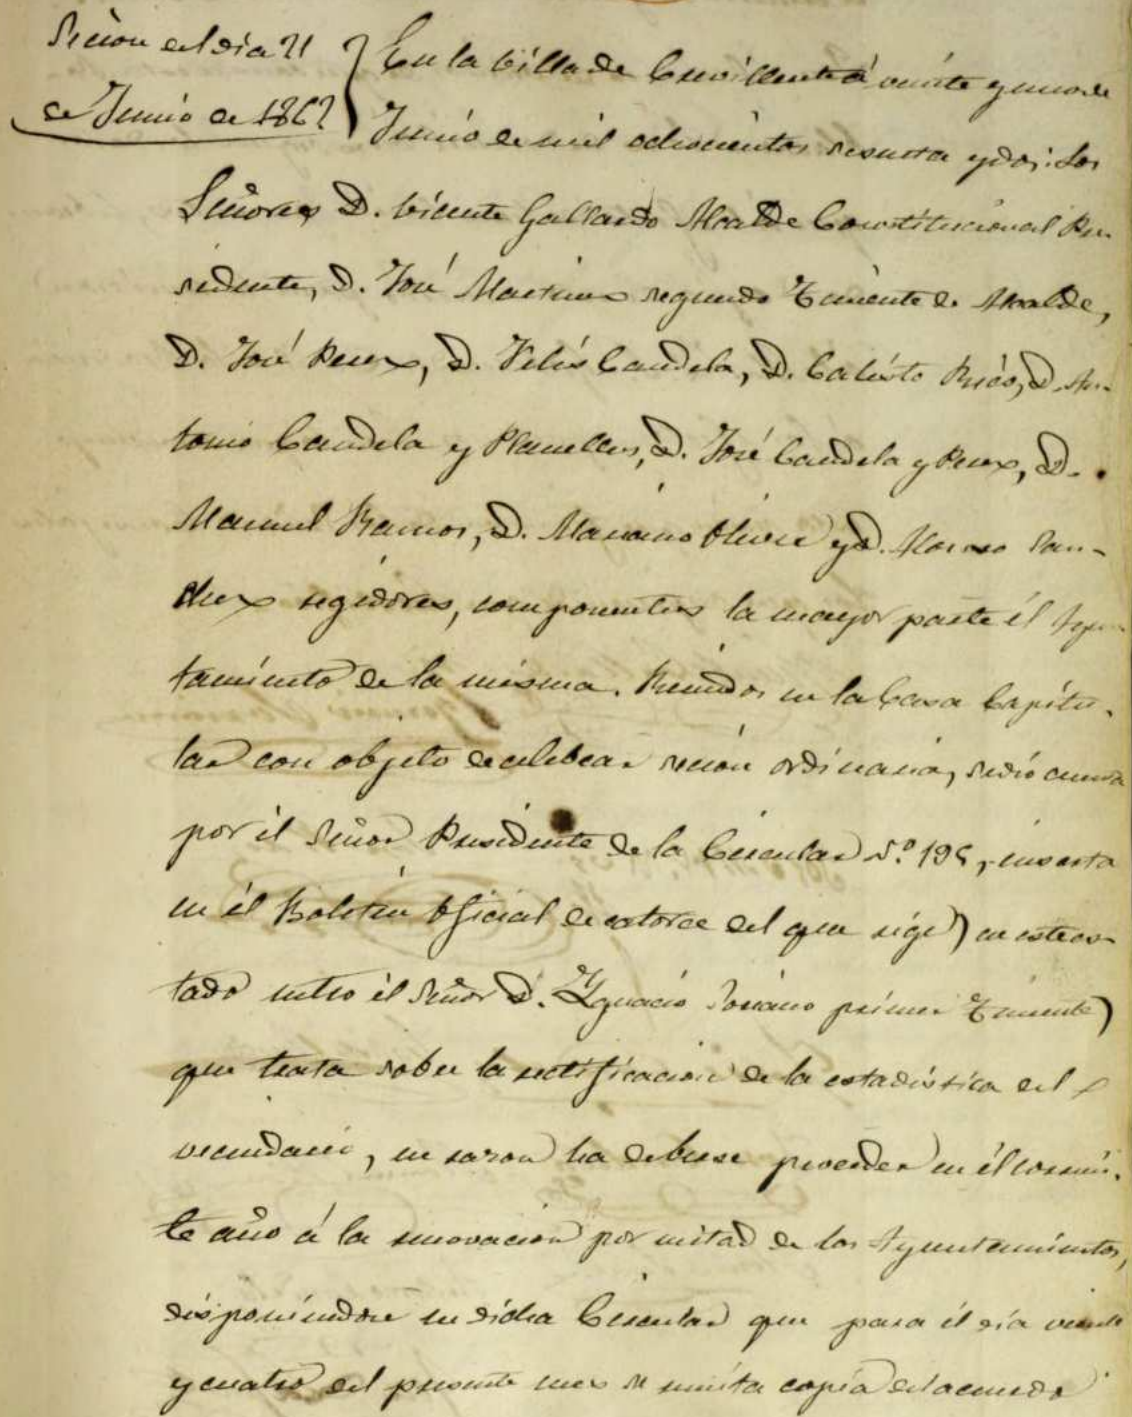 Secion del dia 21
de Junio de 1862
En la Villa de Crevillente á veinte y uno de
Junio de mil ochocientos sesenta y dos: Los
Señores D. Vicente Gallardo Alcalde Constitucional Pre-
sidente, D. José Martinez segundo Teniente de Alcalde,
D. José Perez, D. Felis Candela, D. Calisto D. An-
tonio Candela y Planelles, D. José Candela y Perez, D.
Manuel Ramos, D. Mariano Oliver y D. Alonso San-
chez regidores, componentes la mayor parte él Ayun-
tamiento de la misma. Reunidos en la Casa Capitu-
lar con objeto de celebrar secion ordinaria, se dió cuenta
por él Señor Presidente de la Circular N.º 195, inserta
en él Boletin Oficial de catorce del que rige) en este es-
tado entro él Señor D. Ygnacio Soriano primer Teniente)
que trata sobre la rectificacion de la estadistica del
vecindario, en razon ha deberse proceder en él corrien-
te año á la renovacion por mitad de los Ayuntamientos,
disponiendose en dicha Circular que para él dia veinte
y cuatro del presente mes se remita copia del acuerdo